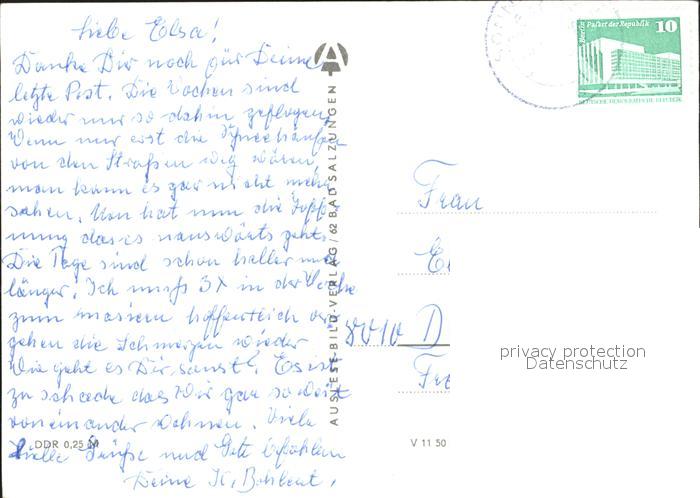 Liebe Elsa!
Danke Dir noch für Deine
letzte Post. Die Wochen sind
wieder nur so dahin geflogen,
Wenn nur erst die Schneehaufen
von den Straßen weg wären,
man kann es gar nicht mehr
sehen. Man hat nun die Hoff-
nung das es nauswärts geht.
Die Tage sind schon heller und
länger. Ich muß 3X in der Woche
zum massieren hoffentlich ver-
gehen die Schmerzen wieder
Wie geht es Dir sonst? Es ist
zu schade das Wir gar so weit
voneinander wohnen. Viele
Grüße und Gott befohlen
Deine K.
DDR 0,25 M
AUSLESE-BILD-VERLAG / 62 BAD SALZUNGEN
V 11 50
Berlin Palast der Republik 10
DEUTSCHE DEMOKRATISCHE REPUBLIK
Frau
8010 D
privacy protection
Datenschutz